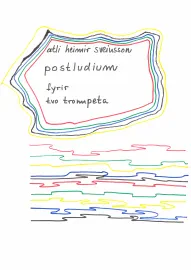 atli heimir sveinsson
postludium
fyrir
tvo trompeta